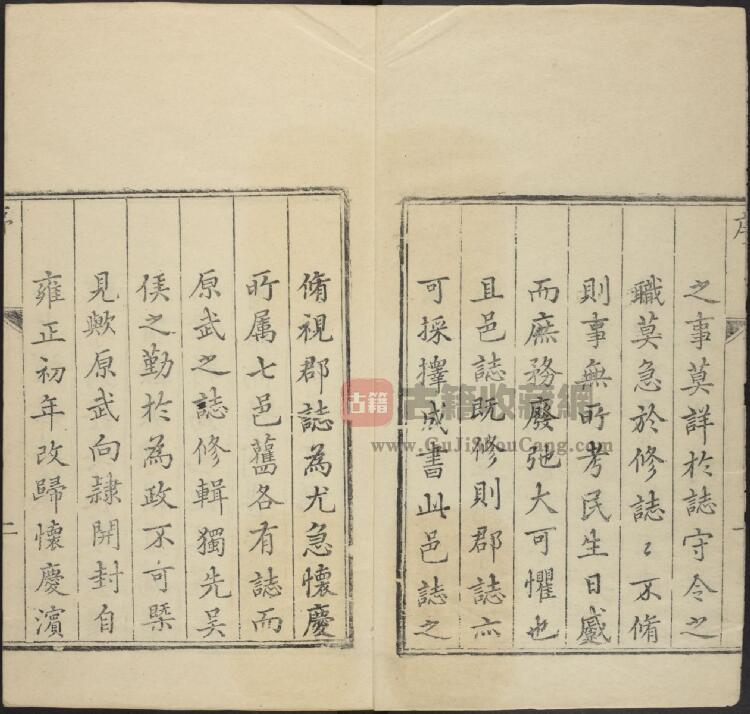 之事莫詳於誌守令之
職莫急於修誌〻不脩
則事無所考民生日蹙
而庶務廢弛大可懼也
且邑誌既修則郡誌亦
可採擇成書此邑誌之
脩視郡誌為尤急懷慶
所属七邑舊各有誌而
原武之誌修輯獨先吴
侯之勤於為政不可槩
見歟原武向隸開封自
雍正初年改歸懷慶濵
序
二
古籍
古籍收藏網
www.GuJiShouCang.com